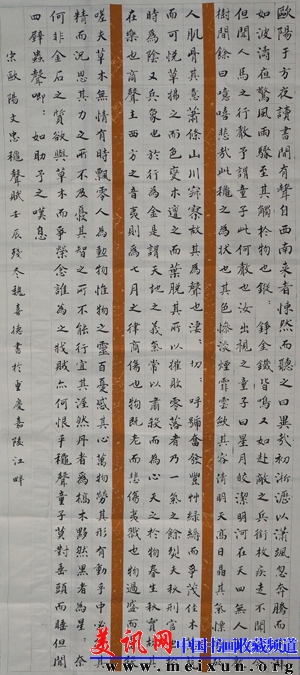 歐陽子方夜讀書聞有聲自西南來者悚然而聽之曰異哉初淅瀝以瀟颯忽奔騰而
如波濤夜驚風雨驟至其觸於物也鏦:錚:金鐵皆鳴又如赴敵之兵銜枚疾走不聞
但聞人馬之行聲予謂童子此何聲也汝出視之童子曰星月皎潔明河在天四無人聲
樹間餘曰噫嘻悲哉此穐聲之為狀也其色慘淡煙霏雲斂其容清明天高日晶其氣
人肌骨其意蕭條山川寂寥故其為聲也淒:切:呼號奮發豐草綠縟而爭茂佳木
而可悅草拂之而色變木遭之而葉脫其所以摧敗零落者乃一氣之餘烈夫秋刑官也
時為陰又兵象也於行為金是謂天地之義氣常以肅殺而為心天之於物春生秋實故其
在樂也商聲主西方之音夷則為七月之律商傷也物既老而悲傷夷戮也物過盛而當
嗟夫草木無情有時飄零人為動物惟物之靈百憂感其心萬物勞其形有動乎中必其
精而況思其力之所不及憂其智之所不能宜其渥然丹者為槁木黟然黑者為星:奈
何非金石之質欲與草木而爭榮念誰為之戕賊亦何恨乎穐聲童子莫對垂頭而睡但聞
四壁蟲聲唧:如助予之嘆息
宋歐陽文忠穐聲賦壬辰殘冬魏喜德書於重慶嘉陵江畔
美讯网
中国书画收藏频道
www.meixun.org